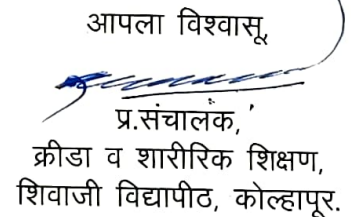 आपला विश्वासू,
प्र.संचालक,
क्रीडा व शारीरिक शिक्षण,
शिवाजी विद्यापीठ, कोल्हापूर.